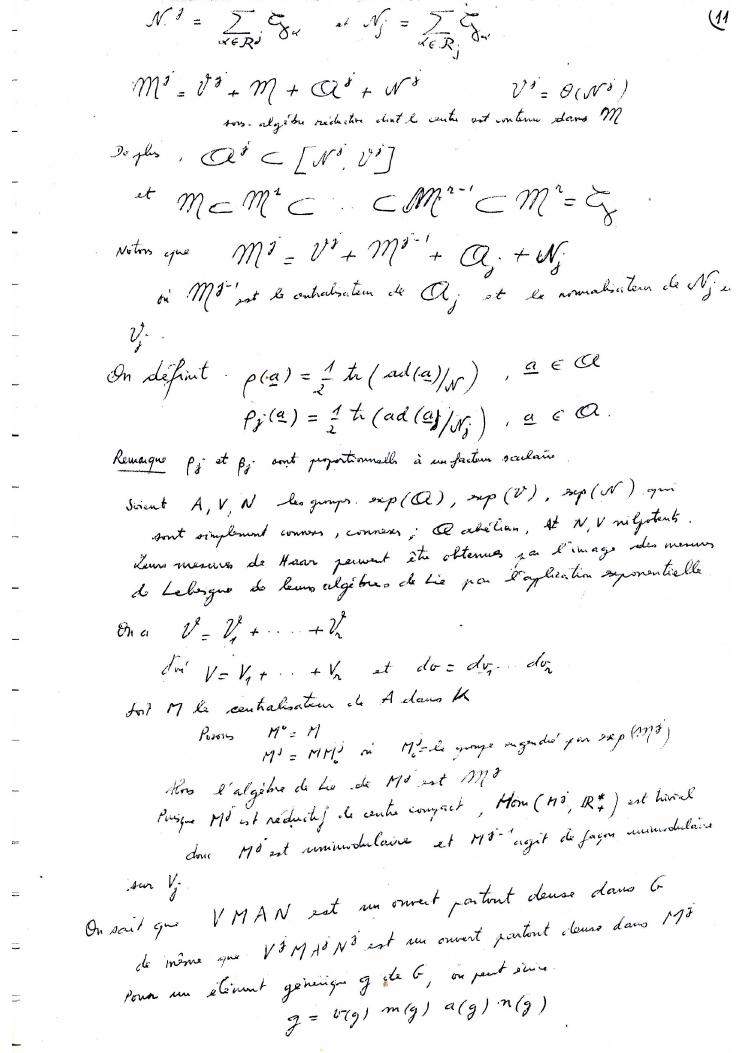 (11
𝒩^j = ∑_{α∈R^j} 𝒢_α et 𝒩_j = ∑_{α∈R_j} 𝒢_α
ℳ^j = 𝒱^j + ℳ + 𝒜^j + 𝒩^j 𝒱^j = θ(𝒩^j)
sous-algèbre réductive dont le centre est contenu dans ℳ
De plus, 𝒜^j ⊂ [𝒩^j, 𝒱^j]
et ℳ ⊂ ℳ^1 ⊂ ... ⊂ ℳ^{r-1} ⊂ ℳ^r = 𝒢
Notons que ℳ^j = 𝒱^j + ℳ^{j-1} + 𝒜_j + 𝒩_j
où ℳ^{j-1} est le centralisateur de 𝒜_j et le normalisateur de 𝒩_j
𝒱_j.
On définit ρ(a) = 1/2 tr(ad(a)/𝒩), a ∈ 𝒜
ρ_j(a) = 1/2 tr(ad(a)/𝒩_j), a ∈ 𝒜.
Remarque ρ_j et β_j sont proportionnels à un facteur scalaire.
Soient A, V, N les groupes exp(𝒜), exp(𝒱), exp(𝒩) qui
sont simplement connexes, connexes; 𝒜 abélian, et N, V nilpotents.
Leurs mesures de Haar peuvent être obtenues par l'image des mesures
de Lebesgue de leurs algèbres de Lie par l'application exponentielle
On a 𝒱 = 𝒱_1 + ... + 𝒱_r
d'où V = V_1 + ... + V_r et dv = dv_1 ... dv_r
Soit M le centralisateur de A dans K
Posons M^0 = M
M^j = M M_0^j où M_0^j = le groupe engendré par exp(ℳ^j)
Alors l'algèbre de Lie de M^j est ℳ^j
Puisque M^j est réductif de centre compact, Hom(M^j, ℝ_+^*) est trivial
donc M^j est unimodulaire et M^{j-1} agit de façon unimodulaire
sur V_j.
On sait que VMAN est un ouvert partout dense dans G
de même que V^j M A^j N^j est un ouvert partout dense dans M^j
Pour un élément générique g de G, on peut écrire.
g = v(g) m(g) a(g) n(g)